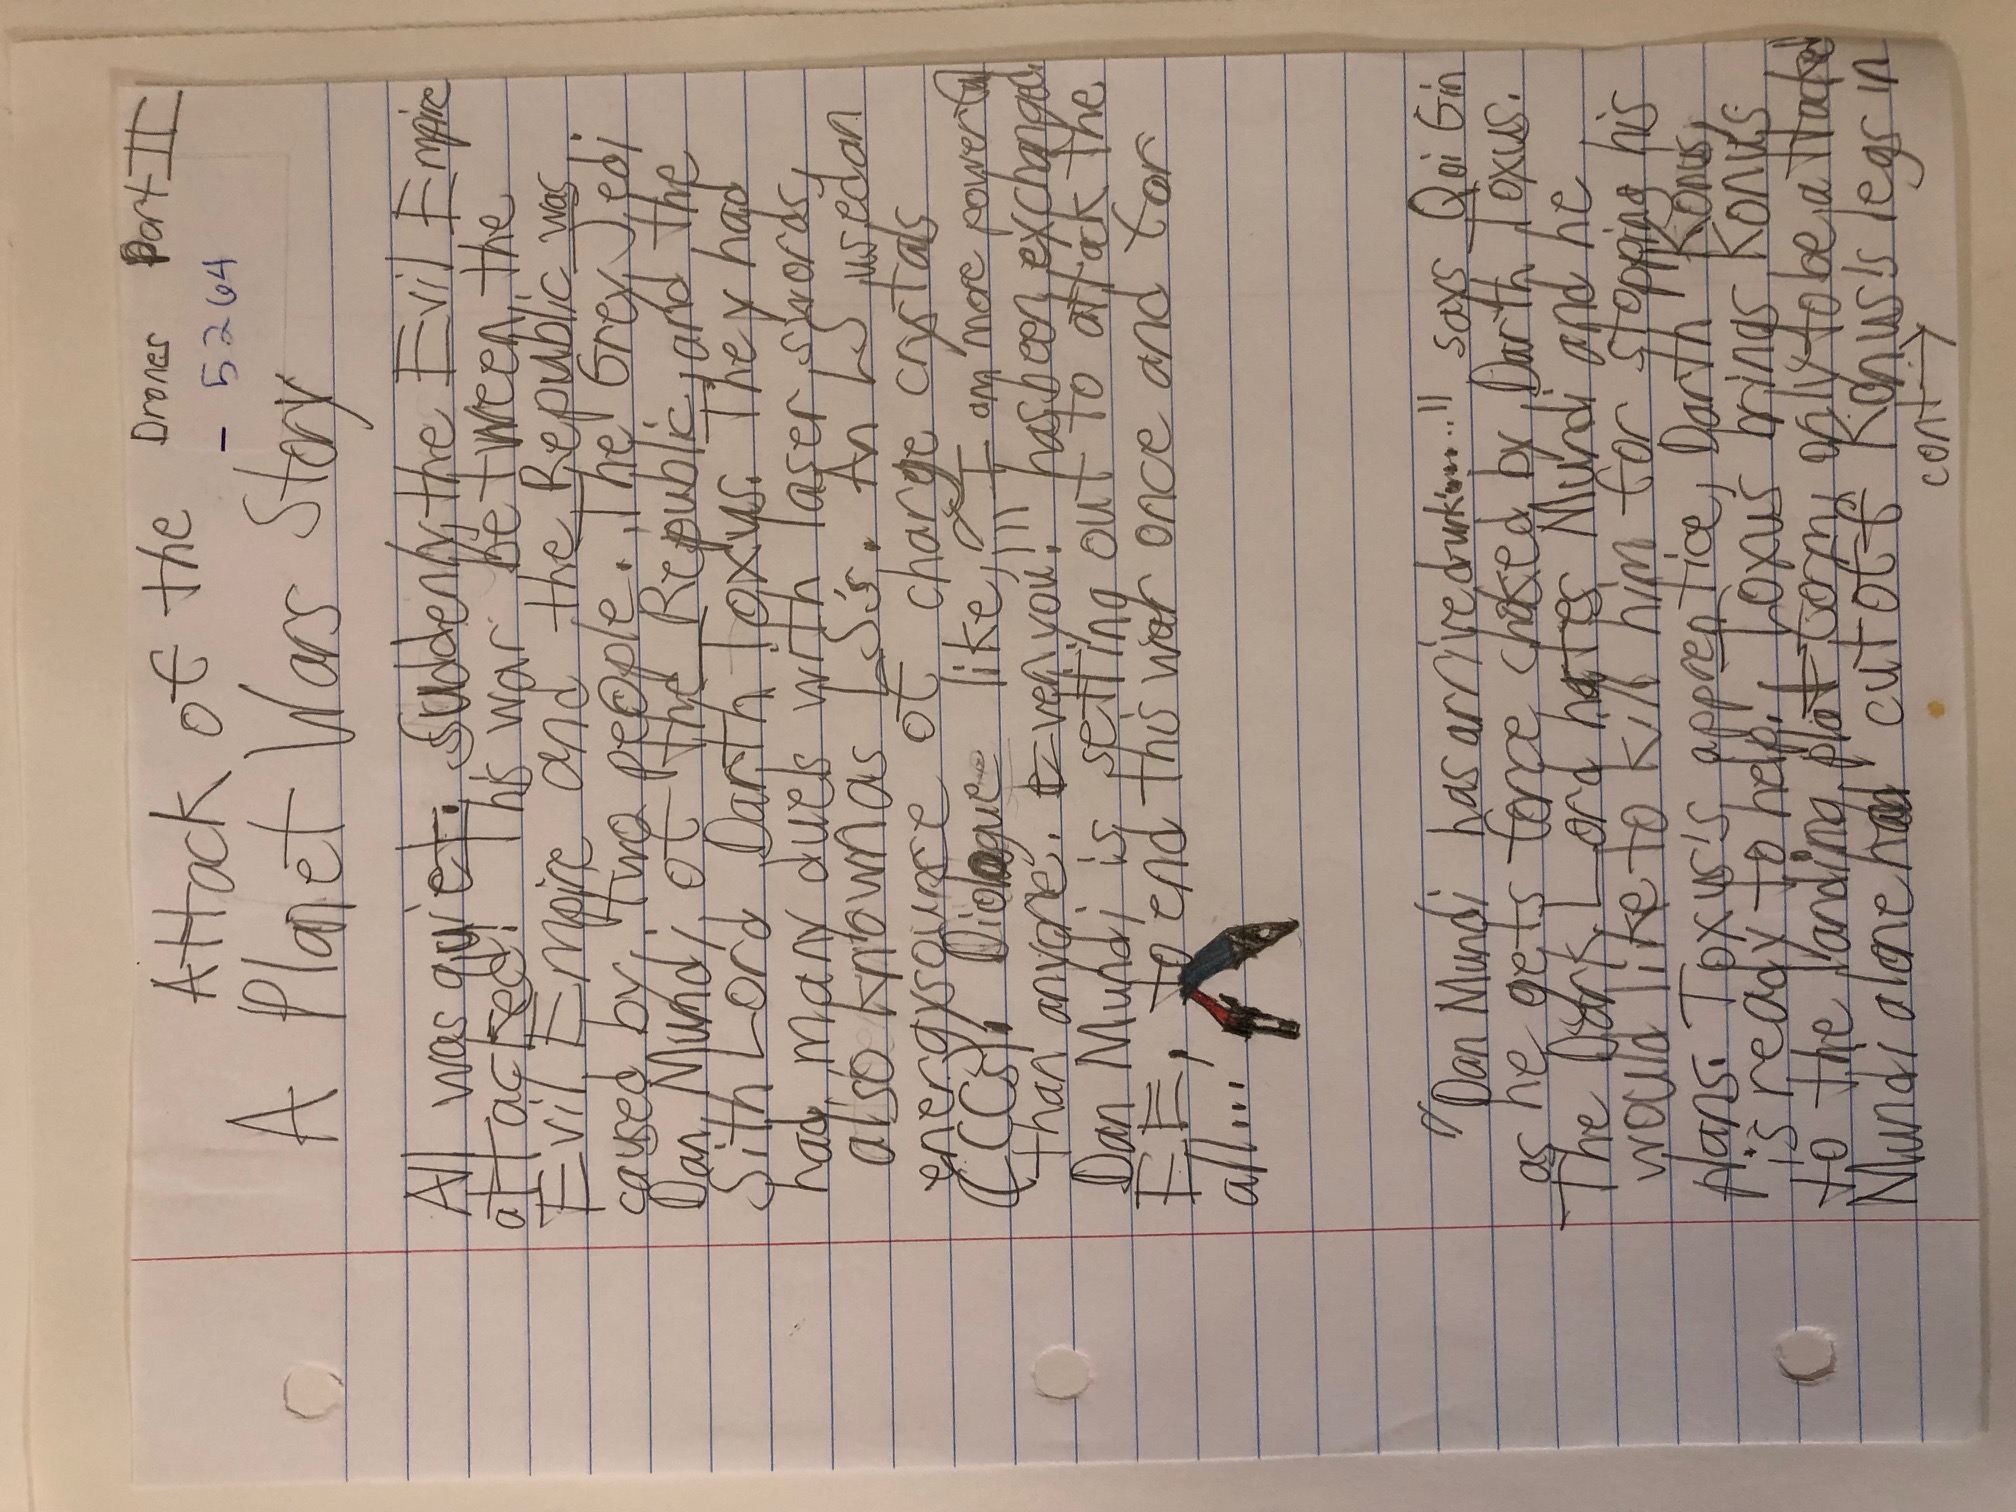 Attack of the Drones Part II
- 5264
A Planet Wars Story
All was quiet. Suddenly, the Evil Empire
attacked! This war between the
Evil Empire and the Republic was
caused by two people. The Grey Jedi
Dan Mundi of the Republic, and the
Sith Lord Darth Toxus. They had
had many duels with laser swords,
also known as LS's. An LS used an
energy source of charge crystals
(CCCs). Dialogue like, "I am more powerful
than anyone. Even you!" has been exchanged.
Dan Mundi is setting out to attack the
EE, to end this war once and for
all...
"Dan Mundi has arrived..." says Qoi Gin
as he gets force choked by Darth Toxus.
The Dark Lord hates Mundi and he
would like to kill him for stopping his
plans. Toxus's apprentice, Darth Konus,
is ready to help. Toxus brings Konus
to the landing platform, only to be attacked
Mundi alone had cut off Konus's legs in
cont→